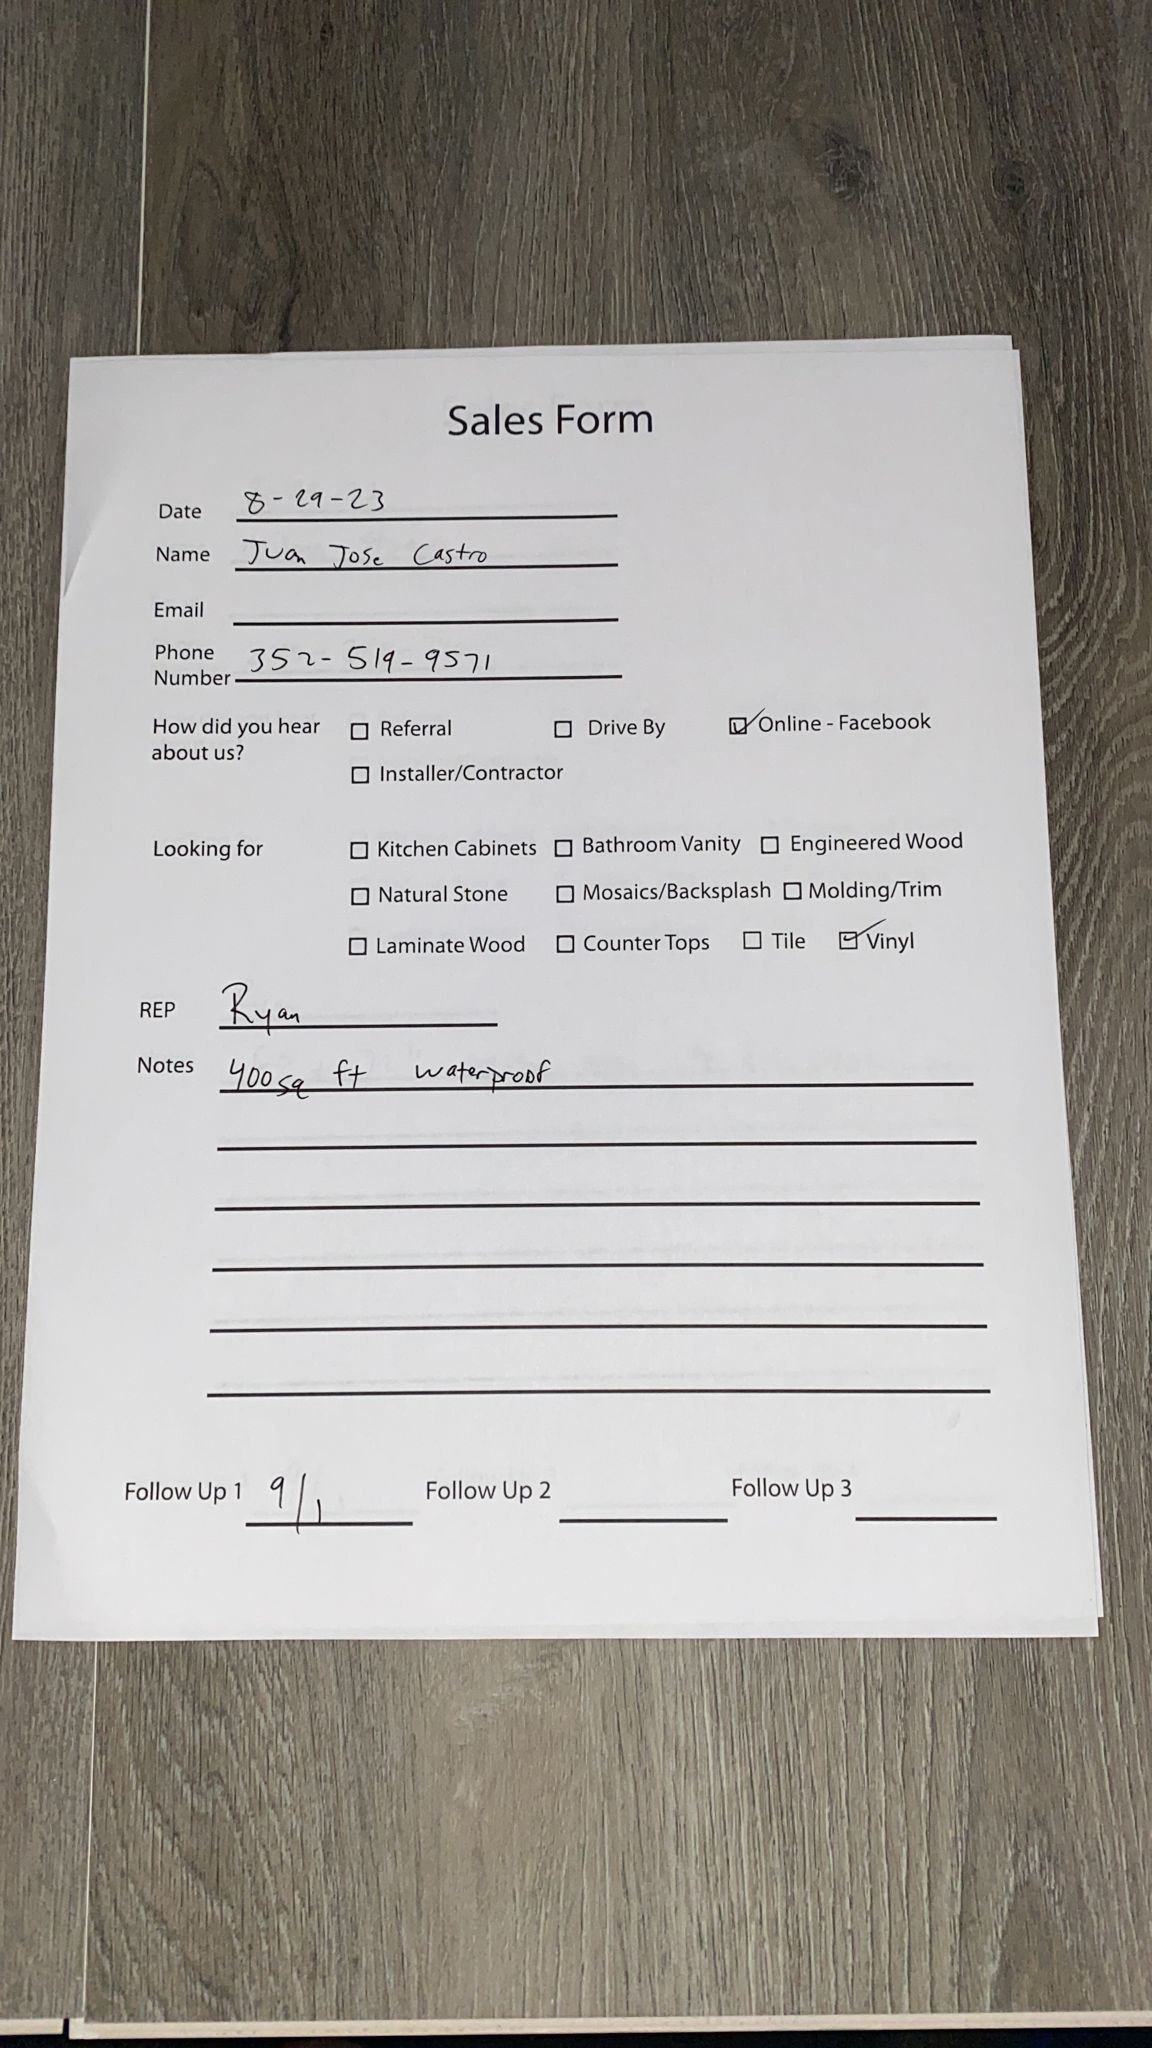 Sales Form
Date 8-29-23
Name Juan Jose Castro
Email
Phone
Number 352-519-9571
How did you hear ☐ Referral ☐ Drive By ☑ Online - Facebook
about us?
☐ Installer/Contractor
Looking for ☐ Kitchen Cabinets ☐ Bathroom Vanity ☐ Engineered Wood
☐ Natural Stone ☐ Mosaics/Backsplash ☐ Molding/Trim
☐ Laminate Wood ☐ Counter Tops ☐ Tile ☑ Vinyl
REP Ryan
Notes 400sq ft waterproof
Follow Up 1 9/1 Follow Up 2 Follow Up 3